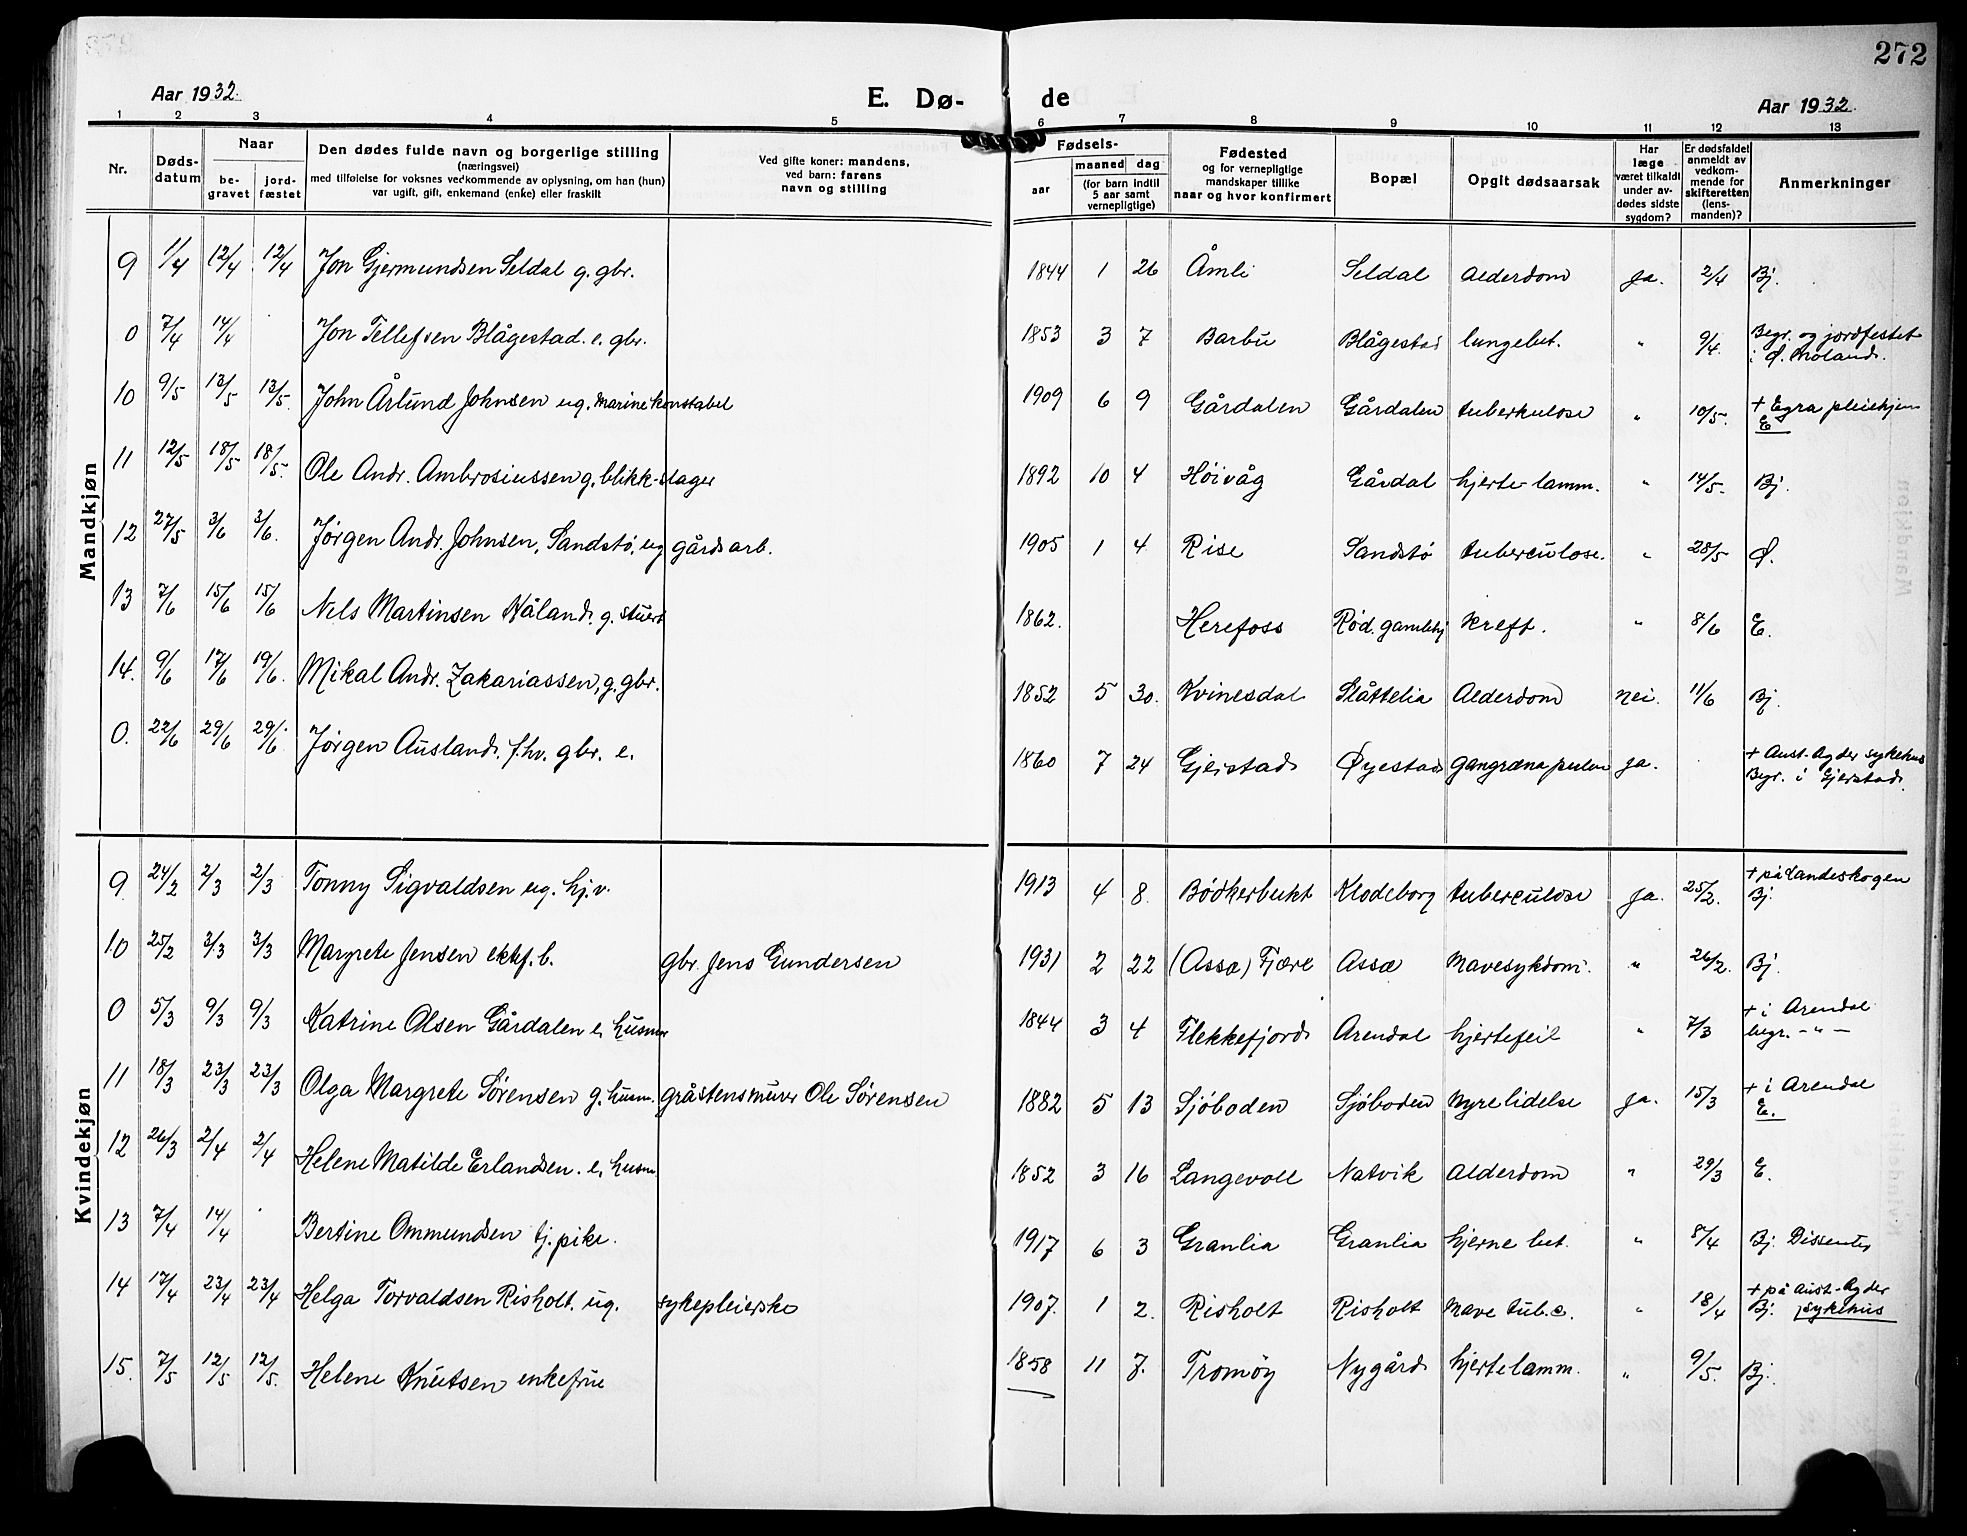 272
Aar 1932.
E. Dø-
de
Aar 1932.
1 2 3 4 5 6 7 8 9 10 11 12 13
Nr.
Døds-
datum
Naar
be-
gravet
jord-
fæstet
Den dødes fulde navn og borgerlige stilling
(næringsvei)
med tilføielse for voksnes vedkommende av oplysning, om han (hun)
var ugift, gift, enkemand (enke) eller fraskilt
Ved gifte koner: mandens,
ved barn: farens
navn og stilling
Fødsels-
aar
maaned dag
(for barn indtil
5 aar samt
vernepligtige)
Fødested
og for vernepligtige
mandskaper tillike
naar og hvor konfirmert
Bopæl
Opgit dødsaarsak
Har
læge
været tilkaldt
under av-
dødes sidste
sygdom?
Er dødsfaldet
anmeldt av
vedkom-
mende for
skifteretten
(lens-
manden)?
Anmerkninger
Mandkjøn
9 1/4 12/4 12/4 Jon Gjermundsen Seldal g. gbr. 1844 1 26 Åmli Seldal Alderdom Ja. 2/4 Bj.
0 7/4 14/4 Jon Tellefsen Blågestad. e. gbr. 1853 3 7 Barbu Blågestad lungebet. " 9/4. Begr. og jordfestet
i Ø. Moland.
10 9/5 13/5 13/5. John Årlund Johnsen ug. marinekonstabel 1909 6 9 Gårdalen Gårdalen tuberkulose " 10/5. + Egra pleiehjem
E
11 12/5 18/5 18/5. Ole Andr. Ambrosiussen g. blikk-slager 1892 10 4 Höivåg Gårdal hjerte-lamm. " 14/5. Bj.
12 27/5 3/6 3/6. Jørgen Andr. Johnsen, Sandstø, ug gårdsarb. 1905 1 4 Rise Sandstø tuberculose. " 28/5 Ø.
13 7/6 15/6 15/6 Nels Martinsen Håland. g. stuert 1862. Herefoss Rød. gamlehj kreft. " 8/6 E.
14. 9/6 17/6 19/6. Mikal Andr. Zakariassen, g. gbr. 1852 5 30. Kvinesdal Slåttelia Alderdom nei. 11/6 Bj.
0. 22/6 29/6 29/6. Jørgen Ausland. f.hv. gbr. e. 1860 7 24 Gjerstad Øyestad gangræna pulm Ja. + Aust-Agder sykehus
Begr. i Gjerstad.
Kvindekjøn
9. 24/2 2/3 2/3 Tonny Sigvaldsen ug. hj.v. 1913 4 8. Bödkerbukt Klodeborg tuberculose Ja. 25/2. + på Landeskogen
Bj.
10 25/2 3/3 3/3 Margrete Jensen ektf. b. gbr. Jens Gundersen 1931 2 22 (Assa) Fjære Assa Mavesykdom. " 26/2. Bj.
0 5/3 9/3 9/3 Katrine Olsen Gårdalen e. husmor 1844 3 4 Flekkefjord Arendal hjertefeil " 7/3 + i Arendal
begr. - " -
11 18/3 23/3 23/3 Olga Margrete Sörensen g. husm. gråstensmurer Ole Sörensen 1882 5 13 Sjöboden Sjöboden nyrelidelse Ja. 15/3 + i Arendal
E.
12 26/3 2/4 2/4 Helene Matilde Erlandsen. e. husm. 1852 3 16 Langevoll Natvik Alderdom " 29/3 E.
13 7/4 14/4 Bertine Ommundsen tj. pike. 1917 6 3 Granlia Granlia hjerne bet. " 8/4 Bj. Dissenter
14 17/4 23/4 23/4 Helga Torvaldsen Risholt. ug. sykepleierske 1907. 1 2. Risholt Risholt mave tub.c. " 18/4 + på Aust-Agder
Bj. sykehus
15. 7/5 12/5 12/5. Helene Knutsen enkefrue 1858 11 7. Tromøy Nygård hjertelamm. " 9/5. Bj.